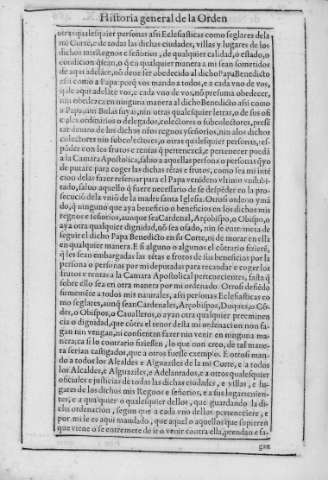 Historia general de la Orden
otras qualesquier personas assi Eclesiasticas como seglares de la
mi Corte, e de todas las dichas ciudades, villas y lugares de los
dichos mis Regnos e señorios, de qualquier calidad, o estado, o
condicion q̃ sean, o q̃ en qualquier manera a mi sean sometidos
de aqui adelãte, nõ deue ser obedecido al dicho Papa Benedicto
assi como a Papa: porq̃ vos mando a todos, e a cada vno de vos,
q̃ de aqui adelãte vos, e cada vno de vos, nõ
obedezca en ninguna manera al dicho Benedicto assi como
a Papa, nin Bulas suyas, nin otras qualesquier letras, o de sus ofi
ciales ordinarios o delegados, colectores o subcolectores,
tar dentro de los dichos mis regnos y señorios, nin a los dichos
colectores nin subcolectores, o otras qualesquier personas,
põder con los frutos e rentas q̃ pertenecerã, e pertenecer pueda
a la Camara Apostolica, saluo a aquellas persona o personas q̃ yo
de putare para coger las dichas rẽtas e frutos, como sea mi intẽ
cion delas fazer reseruar para el Papa venidero
tado, saluo aquello q̃ fuere necessario de se despẽder en la pro-
secuciõ de la vniõ de la madre santa Iglesia. Otrosi ordeno y mã
do, q̃ ninguno que aya beneficio o beneficios en los dichos mis
regnos e señorios, aunque sea Cardenal, Arçobispo, o Obispo, o
aya otra qualquier dignidad, nõ sea osado, nin se entremeta de
seguir el dicho Papa Benedicto en su Corte, ni de morar en ella
en qualquier manera. E si alguno o algunos el cõtrario fizierẽ,
q̃ les sean embargadas las rẽtas e frutos de sus beneficios por la
persona o personas por mi deputadas para recaudar e coger los
frutos e rentas a la Camara Apostolical pertenecientes, fasta q̃
sobre ello sea en otra manera por mi ordenado. Otrosi defiẽdo
firmemẽte a todos mis naturales, assi personas Eclesiasticas co
mo seglares, aunq̃ sean Cardenales, Arçobispos, Duques, o Cõ-
des, o Obispos, o Caualleros, o ayan otra qualquier preeminen
cia o dignidad, que cõtra el tenor desta mi ordenacion non fa-
gan nin vengan, ni consientan fazer nin venir en ninguna ma
nera; ca si lo contrario fiziessen, lo que non creo, de tal mane-
ra serian castigados, que a otros fuesse exemplo. E otrosi man-
do a todos los Alcaldes e Alguaziles de la mi Corte, e a todos
los Alcaldes, e Alguaziles, e Adelantados, e a otros qualesquier
oficiales e justicias de todas las dichas ciudades, e villas, e lu-
gares de los dichos mis Regnos e señorios, e a sus lugartenien-
tes, e a qualquier o qualesquier dellos, que guardando la di-
cha ordenacion, segun que a cada vno dellos pertenesciere, e
por mi les es aqui mandado, que aquel o aquellos que supieren
que viene o se entremete de ir o venir contra ella, prendan e fa-
gan